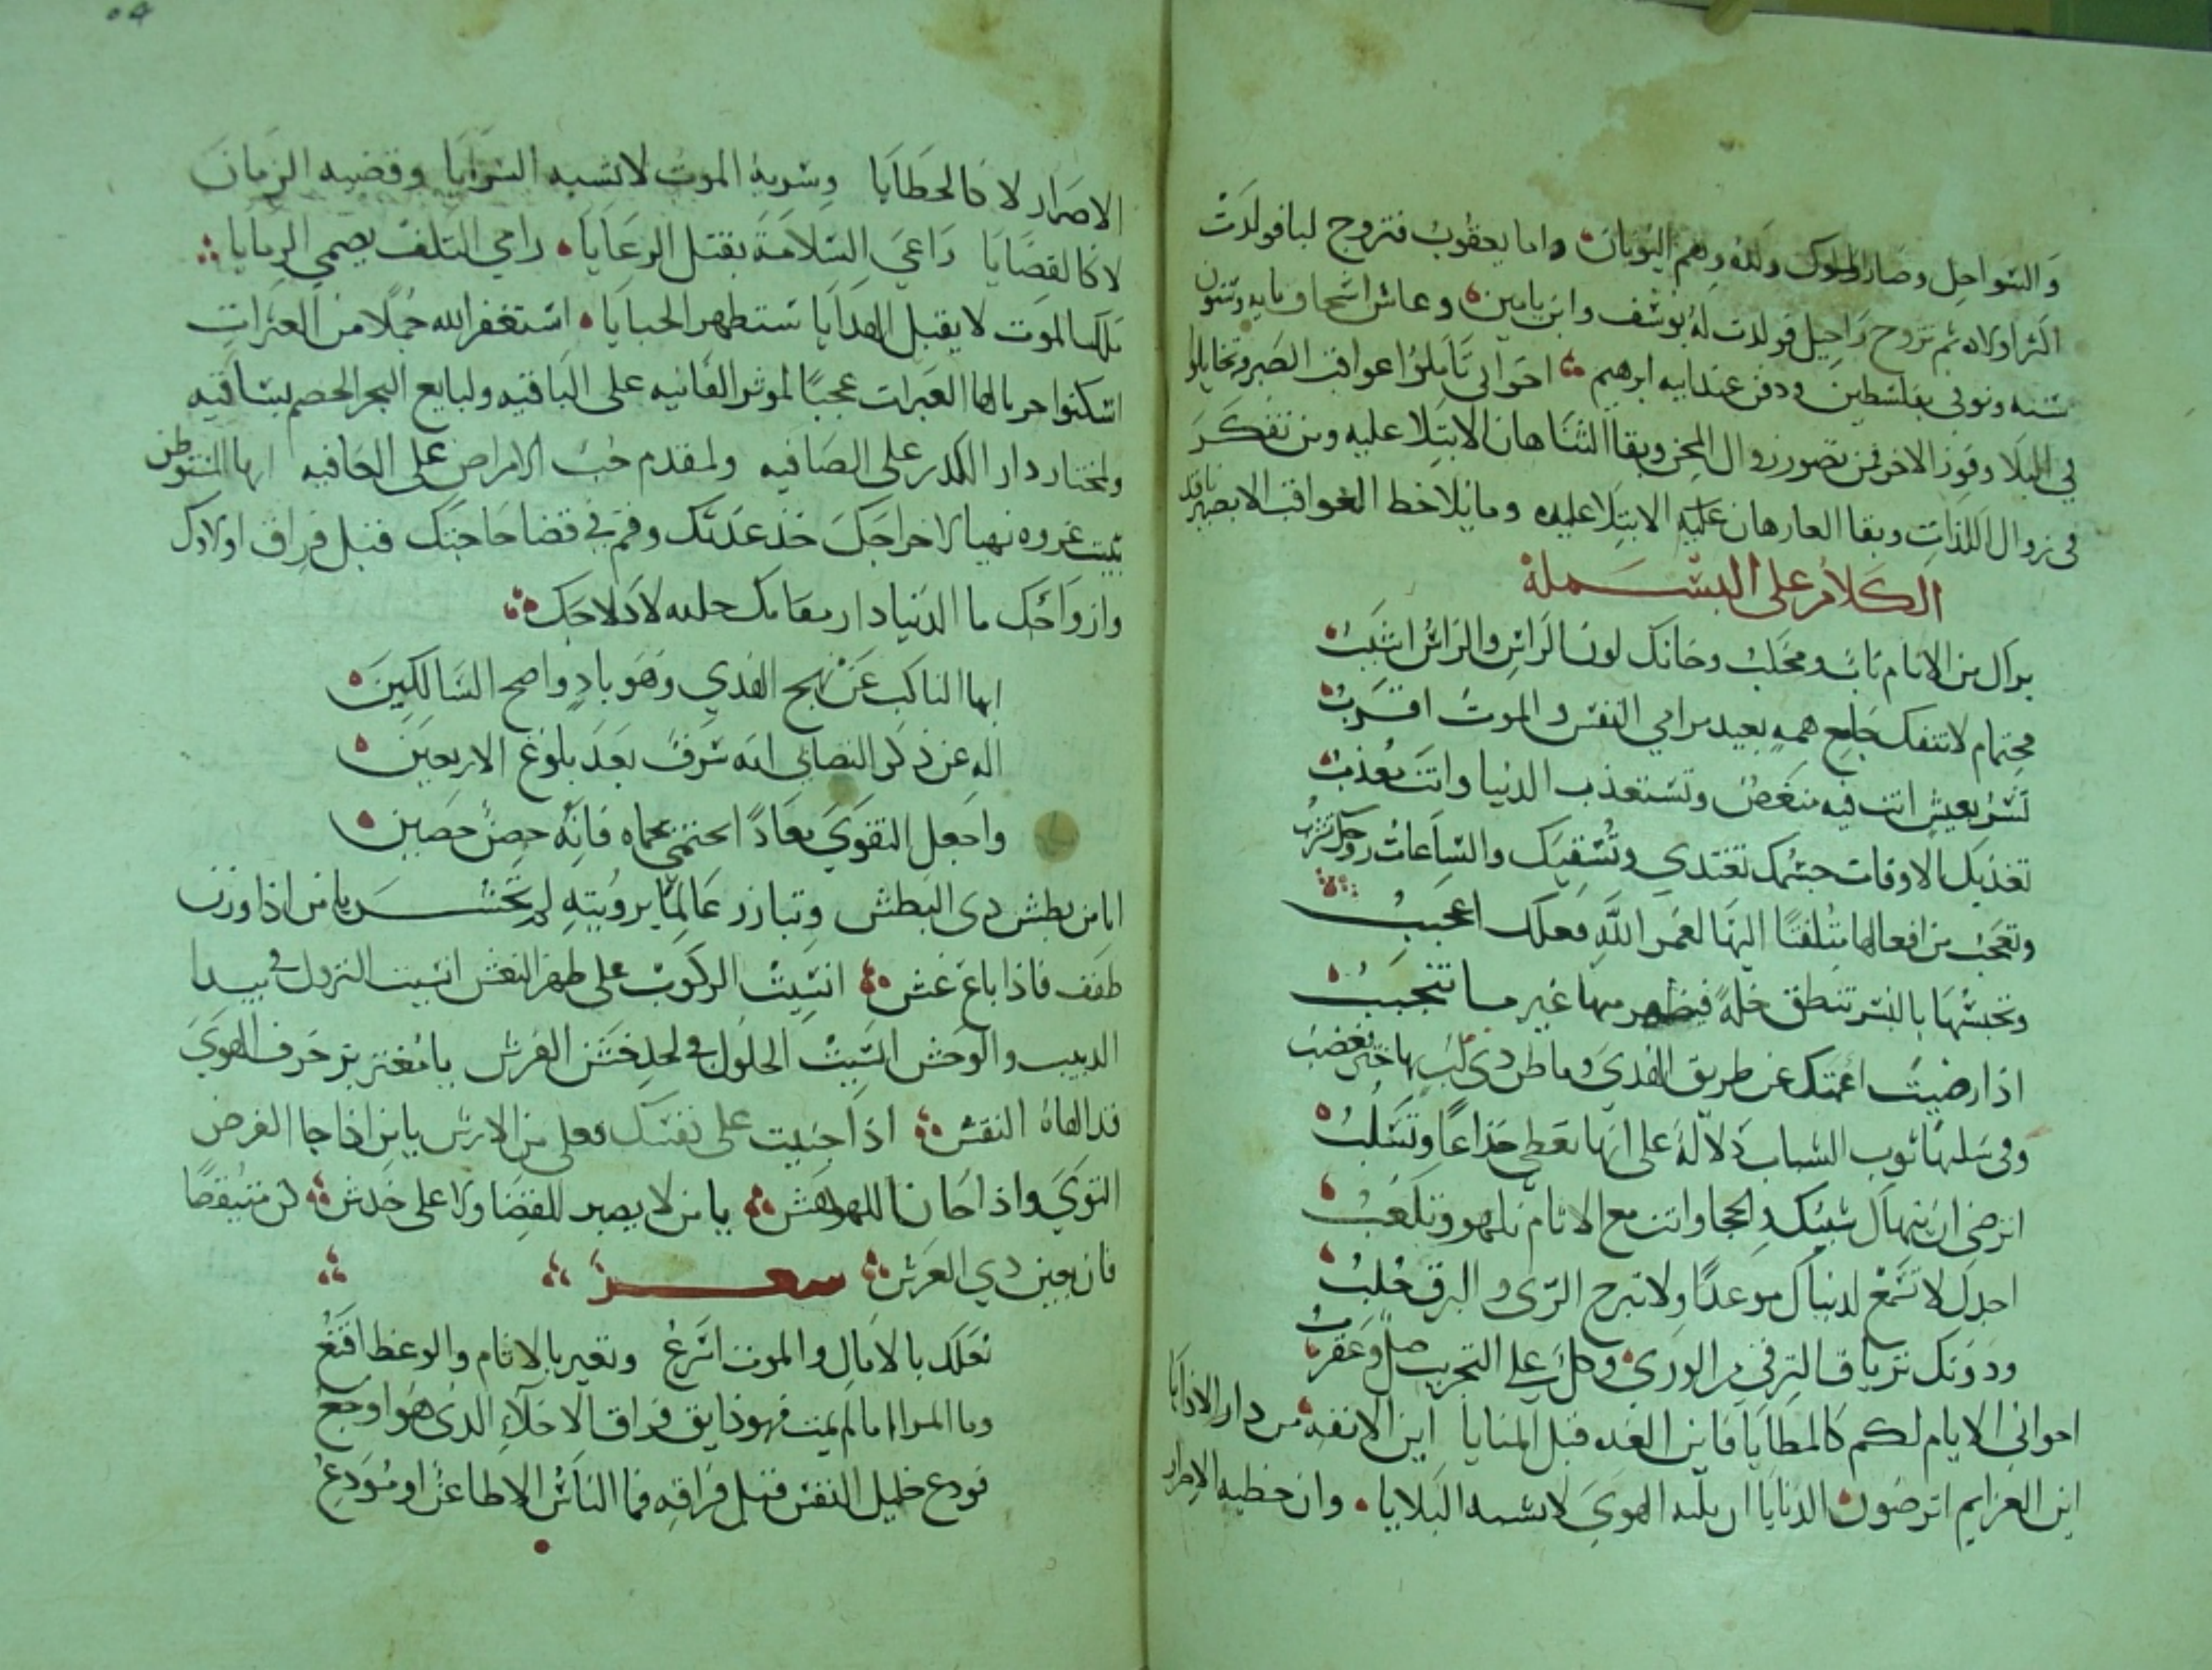 والسواحل وصار الملوك ولده وهم اليونان واما يعقوب فتزوج ليا فولدت
اكثر اولاده ثم تزوج راحيل فولدت له يوسف وابن يامين وعاش اسحاق مايه وثمنون
سنه وتوفي بفلسطين ودفن عند ابيه ابرهيم اخواني تاملوا عواقب الصبر وتخايلوا
في البلا وفوز الاخر فمن تصور زوال المحن وبقا الثنا هان الابتلا عليه ومن تفكر
في زوال اللذات وبقا العار هان عليه الابتلا عليه وما يلاحظ العواقب الا بصير ناقد
الكلام على البسملة
من الانام تاب ومخلب وخانك لون الراس والراس اشيب
لا تنفك جامع همه بعيد مرامي النفس والموت اقرب
تسر بعيش انت فيه منغص وتستعذب الدنيا وانت تعذب
تغذيك الاوقات جسمك تغتدي وتسقيك والساعات روحك تشرب
وتعجب من افعالها متلفتا اليها لعمر الله فعلك اعجب
وتحسبها بالبشر تنطق خلة فيظهر منها غير ما تتحبب
اذا رضيت اعمتك عن طريق الهدى وما ظن ذي لب بها حين تغضب
وفي سلبها ثوب الشباب دلالة على انها تعطي خداعا وتسلب
اترضى ان ينهاك شيبك والحجا وانت مع الايام تلهو وتلعب
اجدك لا تسمع لدنياك موعدا ولا ترج الري والبرق خلب
ودونك ترياق الورى وكل على التجريب صل وعقرب
اخواني الايام لكم كالمطايا فاين العده قبل المنايا اين الانفه من دار الاذايا
اين العزايم اترضون الدنايا ان بليه الهوى لا تشبه البلايا وان خطيه الاصرار
الاصرار لا كالخطايا وسرية الموت لا تشبه السرايا وقضيه الزمان
لا كالقضايا راعي السلامة يقتل الرعايا رامي التلف يصمي الرمايا
ملك الموت لا يقبل الهدايا ستظهر الخبايا استغفر الله خجلا من العثرات
اسكبوا العبرات عجبا لموثر الفانيه على الباقيه ولبايع البحر الخضم بساقيه
ولمختار دار الكدر على الصافيه ولمقدم حب الامراض على العافيه ايها المستوطن
بيت غروره تهيا لاخراجك خذ عدتك وقم في قضا حاجتك قبل فراق اولادك
وازواجك ما الدنيا دار مقامك لادلاجك
ايها الناكب عن نهج الهدي وهو باد واضح السالكين
اله عن ذكر التصابي انه سرف بعد بلوغ الاربعين
واجعل التقوي معاذا تحتمي بحماه فانه حصن حصين
اما من بطش ذي البطش وتبارز عالما برويته لم تخش يا من اذا وزن
طفف فاذا باع غش انسيت الركوب على ظهر النعش انسيت النزول في بيدا
الدبيب والوحش انسيت الحلول في لحد خشن الفرش يا مغتر بزخرف الهوي
قد الهاه النقش اذا جنيت على نفسك فعلي من الارش يا من اذا جا الفرض
التوي واذا حان اللهو هش يا من لا يصبر للقضا ولا على خدش كن متيقظا
فان بعين ذي العرش شعر
تعلك بالامال والموت اسرع وتغير بالايام والوعظ انفع
وما المرا اما لم يمت فهو ذايق فراق الاخلاء الذي هو اوجع
فودع خليل النفس قبل فراقه فما الناس الا ظاعن او مودع